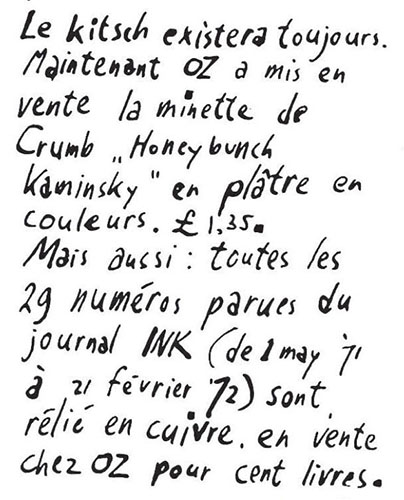 Le kitsch existera toujours.
Maintenant OZ a mis en
vente la minette de
Crumb „Honeybunch
Kaminsky" en plâtre en
couleurs. £ 1,35.
Mais aussi : toutes les
29 numéros parues du
journal INK (de 1 may '71
à 21 février '72) sont
rélié en cuivre. en vente
chez OZ pour cent livres.